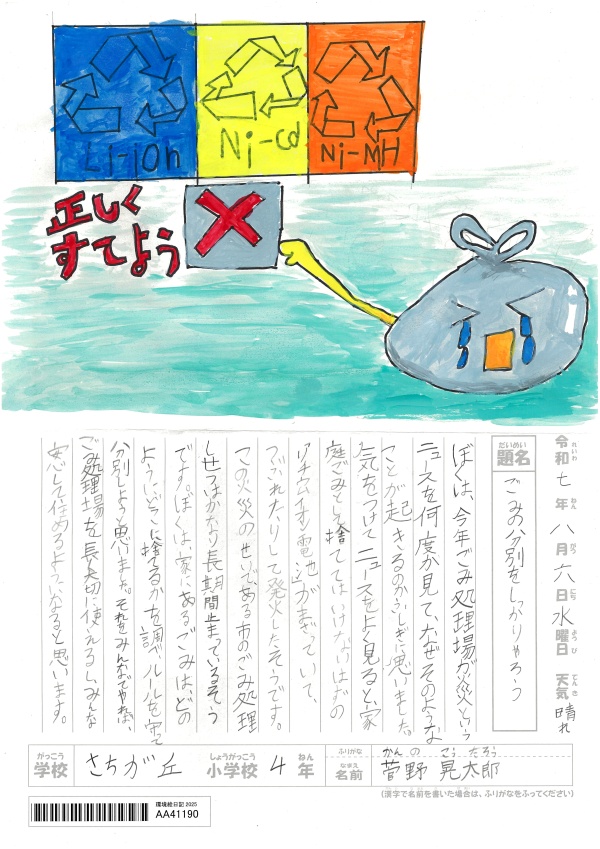 Li-ion
Ni-Cd
Ni-MH
正しく
すてよう
令和七年八月六日水曜日 天気 晴れ
れいわ ねん がつ にち ようび てんき
だいめい
題名
ごみの分別をしっかりやろう
ぼくは、今年ごみ処理場が火災という
ニュースを何度か見て、なぜそのような
ことが起きるのかふしぎに思いました。
気をつけてニュースをよく見ると、家
庭ごみとして捨ててはいけないはずの
リチウムイオン電池がまざっていて、
つぶれたりして発火したそうです。
この火災のせいである市のごみ処理
しせつはかなり長期間止まっているそう
です。ぼくは家にあるごみはどの
ようにどこに捨てるかを調べルールを守って
分別しようと思います。それをみんなでやれば、
ごみ処理場を長く大切に使えるし、みんな
安心して住めるようになると思います。
がっこう
学校
さちが丘
しょうがっこう
小学校
4
ねん
年
ふりがな
かんの こうたろう
なまえ
名前
菅野 晃太郎
(漢字で名前を書いた場合は、ふりがなをふってください)
環境絵日記 2025
AA41190